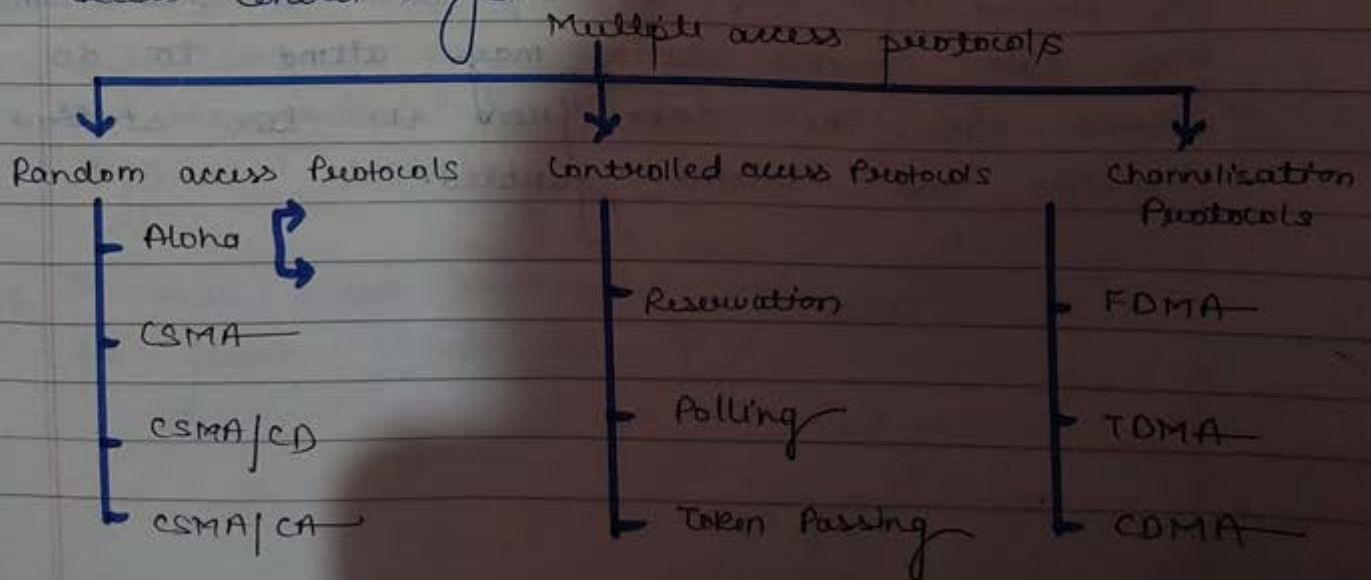 Multiple access protocols
Random access Protocols
Aloha
CSMA
CSMA/CD
CSMA/CA
Controlled access Protocols
Reservation
Polling
Token Passing
Channelisation
Protocols
FDMA
TDMA
CDMA